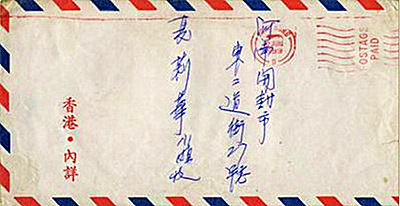 河南開封市
東二道街27號
莉華小姐收
香港·內詳
POSTAGE
PAID